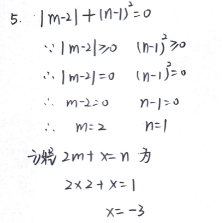 5. |m-2|+(n-1)²=0
∵ |m-2|≥0 (n-1)²≥0
∴ |m-2|=0 (n-1)²=0
∴ m-2=0 n-1=0
∴ m=2 n=1
方程 2m+x=n 为
2×2+x=1
x=-3